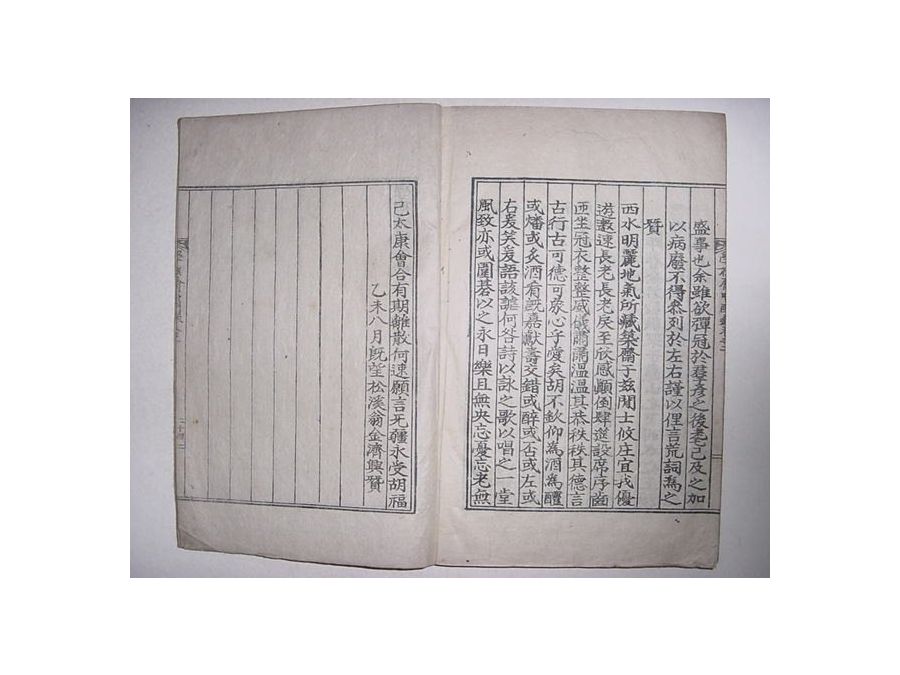 盛事也余雖欲彈冠於羣彦之後耄已及之加
以病廢不得忝列於左右謹以俚言荒詞爲之
賢
西水明麗地氣所藏築齋于玆閒士攸庄宜我優
遊邀速長老長老戾至欣感顚倒肆筵設席序齒
西坐冠衣整整威儀肅肅溫溫其恭秩秩其德言
古行古可德可象心乎愛矣胡不欽仰爲酒爲醴
或燔或炙酒肴旣嘉獻壽交錯或醉或否或左或
右爰笑爰語該謔何咎詩以詠之歌以唱之一堂
風致亦或圍碁以之永日樂且無央忘憂忘老無
己太康會合有期離散何速願言无疆永受胡福
乙未八月旣望松溪翁金濟興賢